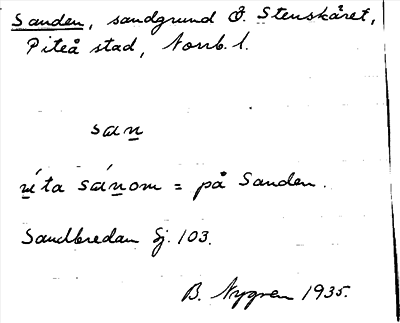 Sanden, sandgrund Ö. Stenskäret,
Piteå stad, Norrb. l.
san
úta sánom = på Sanden.
Sandbredan Sj. 103.
B. Nygren 1935.